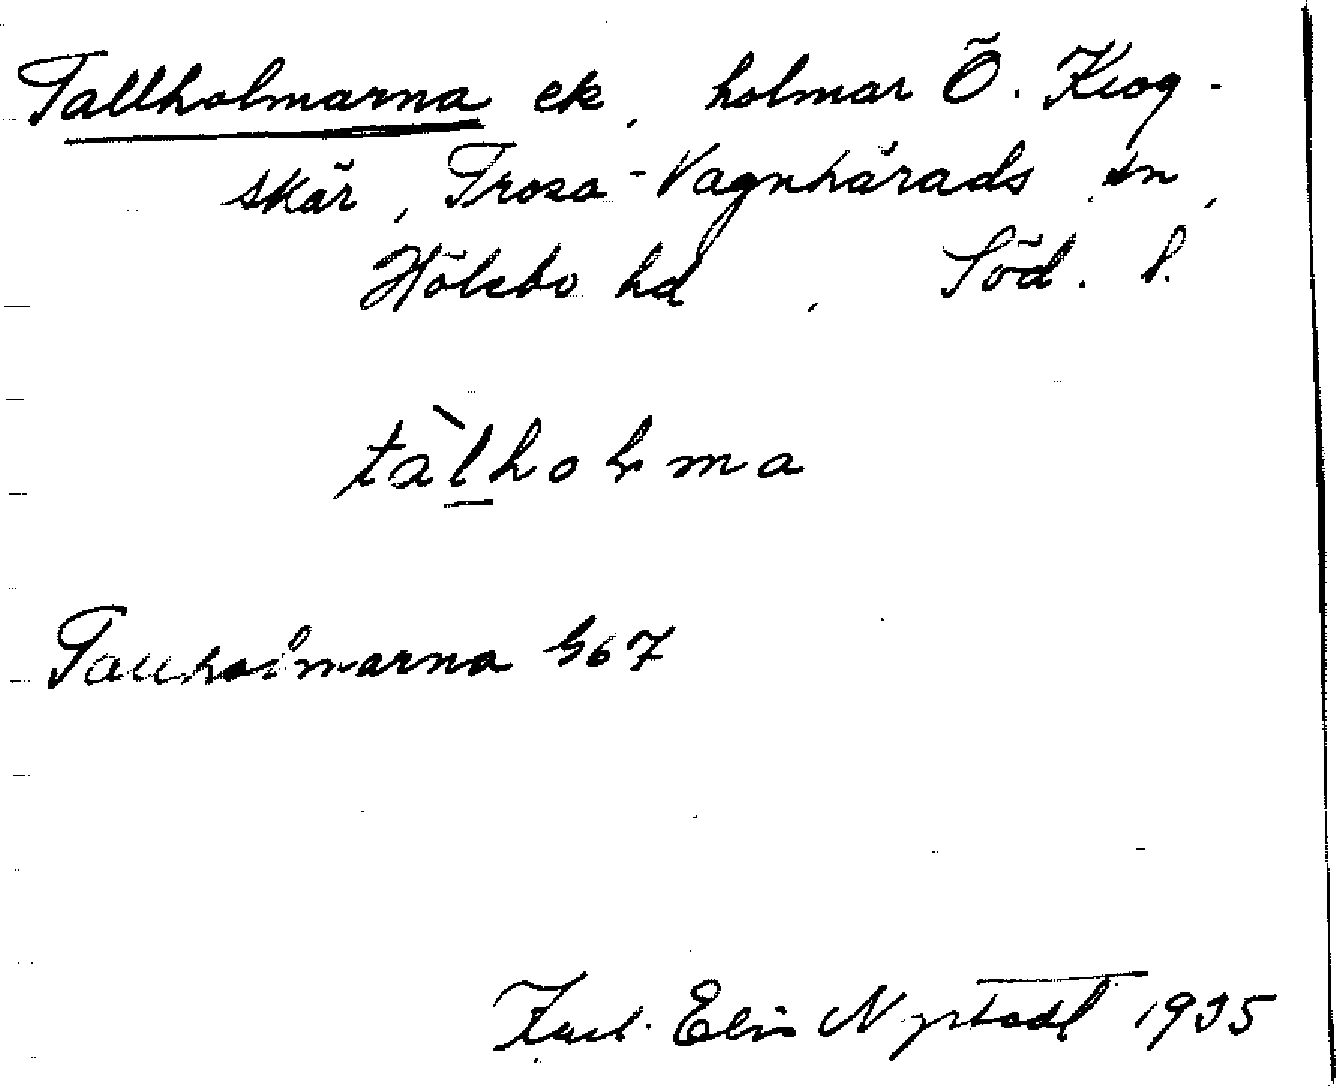 Tallholmarna ek, holmar Ö. Krog-
skär, Trosa-Vagnhärads sn,
Hölebo hd, Söd. l.
tàl̲holma
Tallholmarna G67
Karl-Elis Nystadt 1935